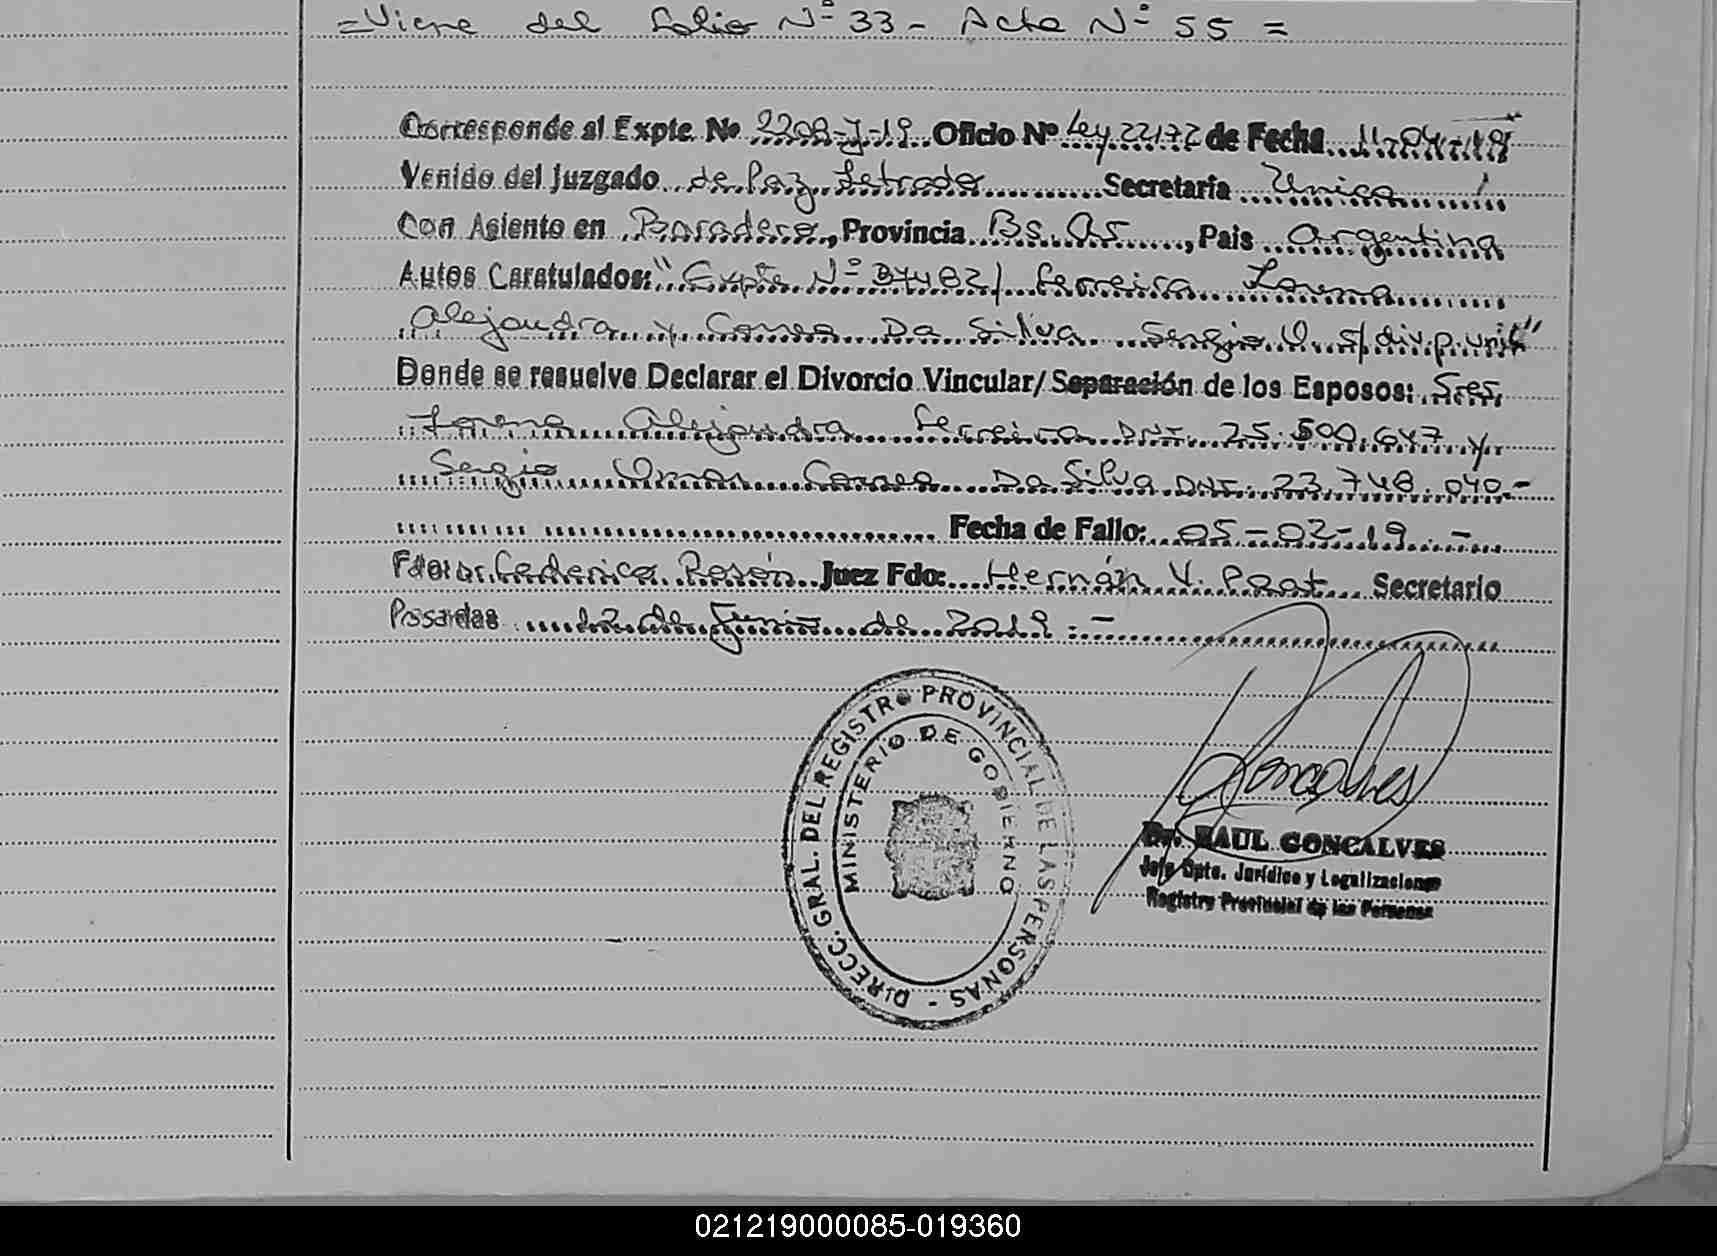 =Viene del Folio Nº 33- Acta Nº 55 =
Corresponde al Expte. Nº 2208-J-19 Oficio Nº Ley 22172 de Fecha 11-04-19
Venido del Juzgado de Paz Letrado Secretaria Unica
Con Asiento en Baradero, Provincia Bs. As, Pais Argentina
Autos Caratulados: "Expte Nº 37482/ Ferreira Lorena
Alejandra y Correa Da Silva Sergio O. s/div.p.unil"
Donde se resuelve Declarar el Divorcio Vincular/Separación de los Esposos: Sres.
Lorena Alejandra Ferreira DNI. 25.500.647 y
Sergio Omar Correa Da Silva DNI. 23.748.040.-
Fecha de Fallo: 05-02-19.-
Fdo: Dr. Federico Rosón Juez Fdo: Hernán V. Prat Secretario
Posadas 12 de Junio de 2019.-
DIRECC. GRAL. DEL REGISTRO PROVINCIAL DE LAS PERSONAS -
MINISTERIO DE GOBIERNO
Goncalves
Dr. RAUL GONCALVES
Jefe Dpto. Jurídico y Legalizaciones
Registro Provincial de las Personas
021219000085-019360